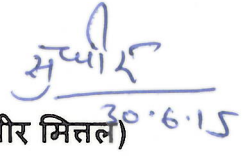 सुधीर
30.6.15
ीर मित्तल)